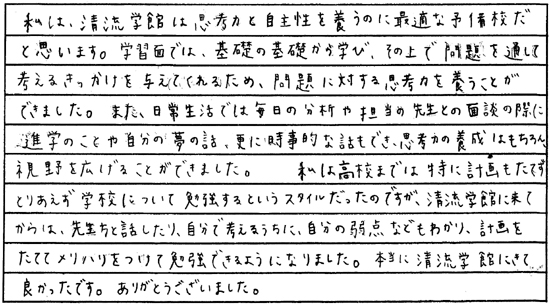 私は、清流学館は思考力と自主性を養うのに最適な予備校だ
と思います。学習面では、基礎の基礎から学び、その上で問題を通して
考えるきっかけを与えてくれるため、問題に対する思考力を養うことが
できました。また、日常生活では毎日の分析や担当の先生との面談の際に
進学のことや自分の夢の話、更に時事的な話もでき、思考力の養成はもちろん、
視野を広げることができました。 私は高校までは特に計画もたてず
とりあえず学校について勉強するというスタイルだったのですが、清流学館に来て
からは、先生方と話したり、自分で考えるうちに、自分の弱点などもわかり、計画を
たててメリハリをつけて勉強できるようになりました。本当に清流学館にきて
良かったです。ありがとうございました。